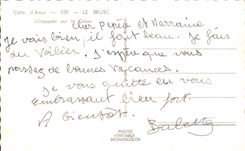 Côte d'Azur - 539 - LE BRUSC
Cher pépé et Marraine
Je vais bien, il fait beau. Je fais
du voilier. J'espère que vous
passez de bonnes vacances.
Je vous quitte en vous
embrassant bien fort.
A bientôt.
PHOTO
VERITABLE